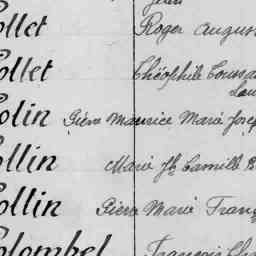 ollet Roger Augus
ollet Théophile Toussa
Lou
olin Pierre Maurice Marie Jose
ollin Marie Jh Camille
ollin Pierre Marie Franç
olombel François